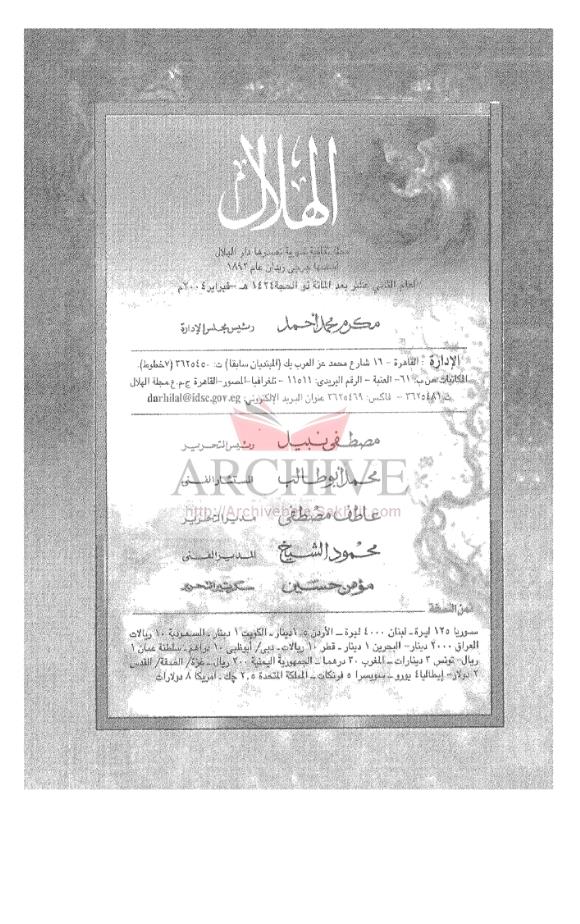 الهلال
مجلة ثقافية شهرية تصدرها دار الهلال
أسسها جرجى زيدان عام ١٨٩٢
العام الثانى عشر بعد المائة ذو الحجة ١٤٢٤ هـ - فبراير ٢٠٠٤م
مكرم محمد أحمد رئيس مجلس الإدارة
الإدارة : القاهرة - ١٦ شارع محمد عز العرب بك (المبتديان سابقا) ت: ٣٦٢٥٤٥٠ (٧ خطوط).
المكاتبات: ص.ب: ٦١- العتبة - الرقم البريدى: ١١٥١١ - تلغرافيا - المصور - القاهرة ج.م.ع مجلة الهلال
ت: ٣٦٢٥٤٨١ - فاكس: ٣٦٢٥٤٦٩ عنوان البريد الإلكترونى: darhilal@idsc.gov.eg
مصطفى نبيل رئيس التحرير
محمد أبو طالب المستشار الفنى
ARCHIVE
عاطف مصطفى مدير التحرير
محمود الشيخ المدير الفنى
مؤمن حسين سكرتير التحرير
ثمن النسخة
سوريا ١٢٥ ليرة ـ لبنان ٤٠٠٠ ليرة ــ الأردن ١.٥ دينار ـ الكويت ١ دينار ـ السعودية ١٠ ريالات
العراق ٢٠٠٠ دينار- البحرين ١ دينار ـ قطر ١٠ ريالات ـ دبى/ أبوظبى ١٠ دراهم ـ سلطنة عمان ١
ريال- تونس ٣ دينارات ـ المغرب ٣٠ درهما ــ الجمهورية اليمنية ٣٠٠ ريال ـ غزة/ الضفة/ القدس
٢ دولار- إيطاليا ٤ يورو ـ سويسرا ٥ فرنكات ـ المملكة المتحدة ٢,٥ جك ـ أمريكا ٨ دولارات